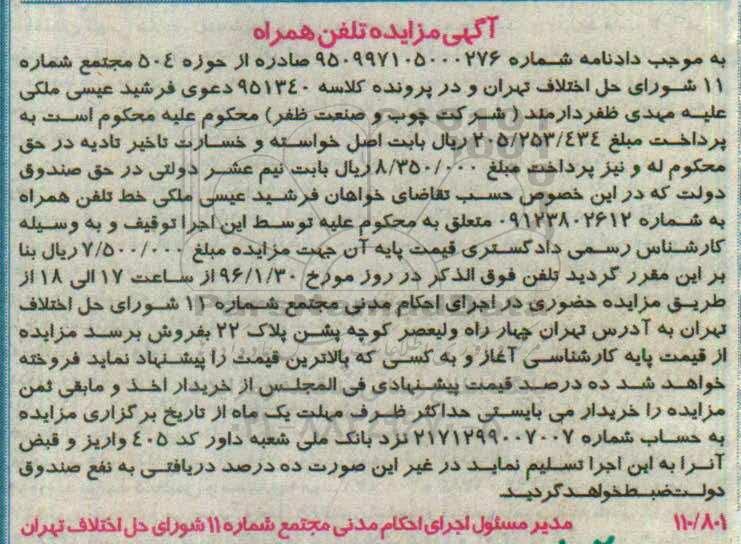 آگهی مزایده تلفن همراه
به موجب دادنامه شماره ۹۵۰۹۹۷۱۰۵۰۰۰۲۷۶ صادره از حوزه ۵۰۴ مجتمع شماره
۱۱ شورای حل اختلاف تهران و در پرونده کلاسه ۹۵۱۳۴۰ دعوی فرشید عیسی ملکی
علیه مهدی ظفردارمند ( شرکت چوب و صنعت ظفر) محکوم علیه محکوم است به
پرداخت مبلغ ۲۰۵/۲۵۳/۴۳۴ ریال بابت اصل خواسته و خسارت تاخیر تادیه در حق
محکوم له و نیز پرداخت مبلغ ۸/۳۵۰/۰۰۰ ریال بابت نیم عشر دولتی در حق صندوق
دولت که در این خصوص حسب تقاضای خواهان فرشید عیسی ملکی خط تلفن همراه
به شماره ۰۹۱۲۳۸۰۲۶۱۲ متعلق به محکوم علیه توسط این اجرا توقیف و به وسیله
کارشناس رسمی دادگستری قیمت پایه آن جهت مزایده مبلغ ۷/۵۰۰/۰۰۰ ریال بنا
بر این مقرر گردید تلفن فوق الذکر در روز مورخ ۹۶/۱/۳۰ از ساعت ۱۷ الی ۱۸ از
طریق مزایده حضوری در اجرای احکام مدنی مجتمع شماره ۱۱ شورای حل اختلاف
تهران به آدرس تهران چهار راه ولیعصر کوچه پشن پلاک ۲۲ بفروش برسد مزایده
از قیمت پایه کارشناسی آغاز و به کسی که بالاترین قیمت را پیشنهاد نماید فروخته
خواهد شد ده درصد قیمت پیشنهادی فی المجلس از خریدار اخذ و مابقی ثمن
مزایده را خریدار می بایستی حداکثر ظرف مهلت یک ماه از تاریخ برگزاری مزایده
به حساب شماره ۲۱۷۱۲۹۹۰۰۷۰۰۷ نزد بانک ملی شعبه داور کد ۴۰۵ واریز و قبض
آنرا به این اجرا تسلیم نماید در غیر این صورت ده درصد دریافتی به نفع صندوق
دولت ضبط خواهد گردید.
۱۱۰/۸۰۱ مدیر مسئول اجرای احکام مدنی مجتمع شماره ۱۱ شورای حل اختلاف تهران